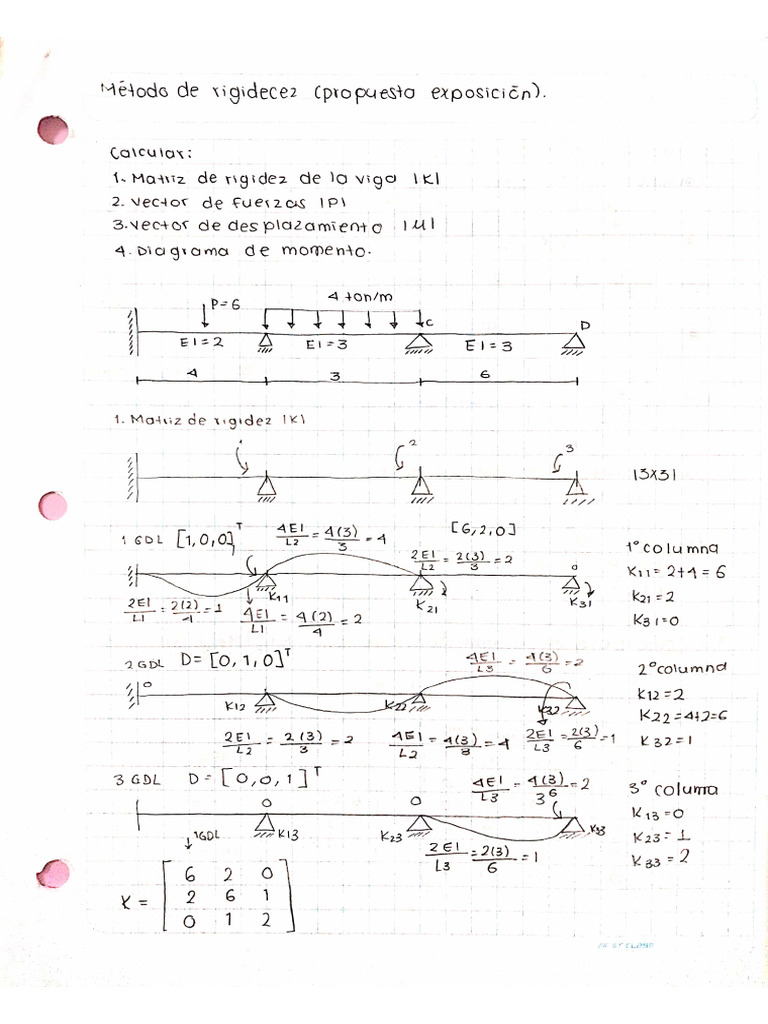 Método de rigidecez (propuesto exposición).
Calcular:
1. Matriz de rigidez de la viga |K|
2. Vector de fuerzas |P|
3. Vector de desplazamiento |U|
4. Diagrama de momento.
P=6
4 ton/m
C
D
EI=2 EI=3 EI=3
4 3 6
1. Matriz de rigidez |K|
2 3
|3X3|
1 GDL [1,0,0]T 4EI/L2 = 4(3)/3 = 4 [6,2,0] 1° columna
2EI/L2 = 2(3)/3 = 2 0
K11 K21 K31
K11 = 2+4 = 6
K21 = 2
K31 = 0
2EI/L1 = 2(2)/4 = 1 4EI/L1 = 4(2)/4 = 2
2 GDL D = [0,1,0]T 4EI/L3 = 4(3)/6 = 2 2° columna
0
K12 K22 K32
K12 = 2
K22 = 4+2 = 6
K32 = 1
2EI/L2 = 2(3)/3 = 2 4EI/L2 = 4(3)/3 = 4 2EI/L3 = 2(3)/6 = 1
3 GDL D = [0,0,1]T 4EI/L3 = 4(3)/6 = 2 3° coluna
3
0 0
K13 K23 K33
K13 = 0
K23 = 1
K33 = 2
1GDL
2EI/L3 = 2(3)/6 = 1
K =
6 2 0
2 6 1
0 1 2